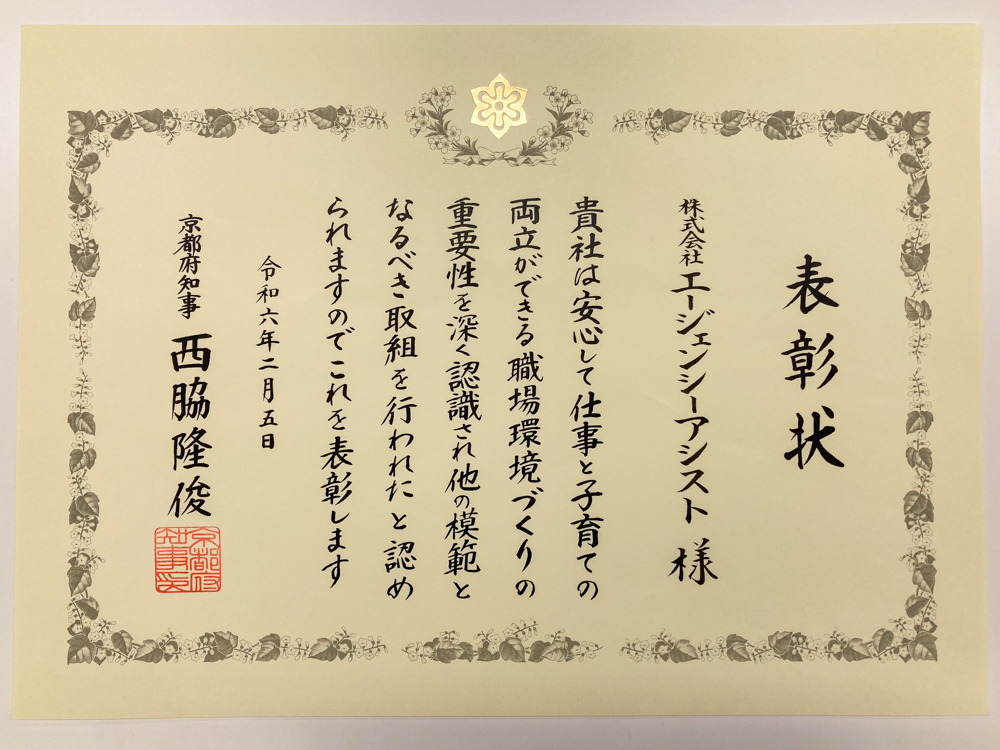 表彰状
株式会社エージェンシーアシスト 様
貴社は安心して仕事と子育ての
両立ができる職場環境づくりの
重要性を深く認識され他の模範と
なるべき取組を行われたと認め
られますのでこれを表彰します
令和六年二月五日
京都府知事 西脇隆俊
京都府
知事印